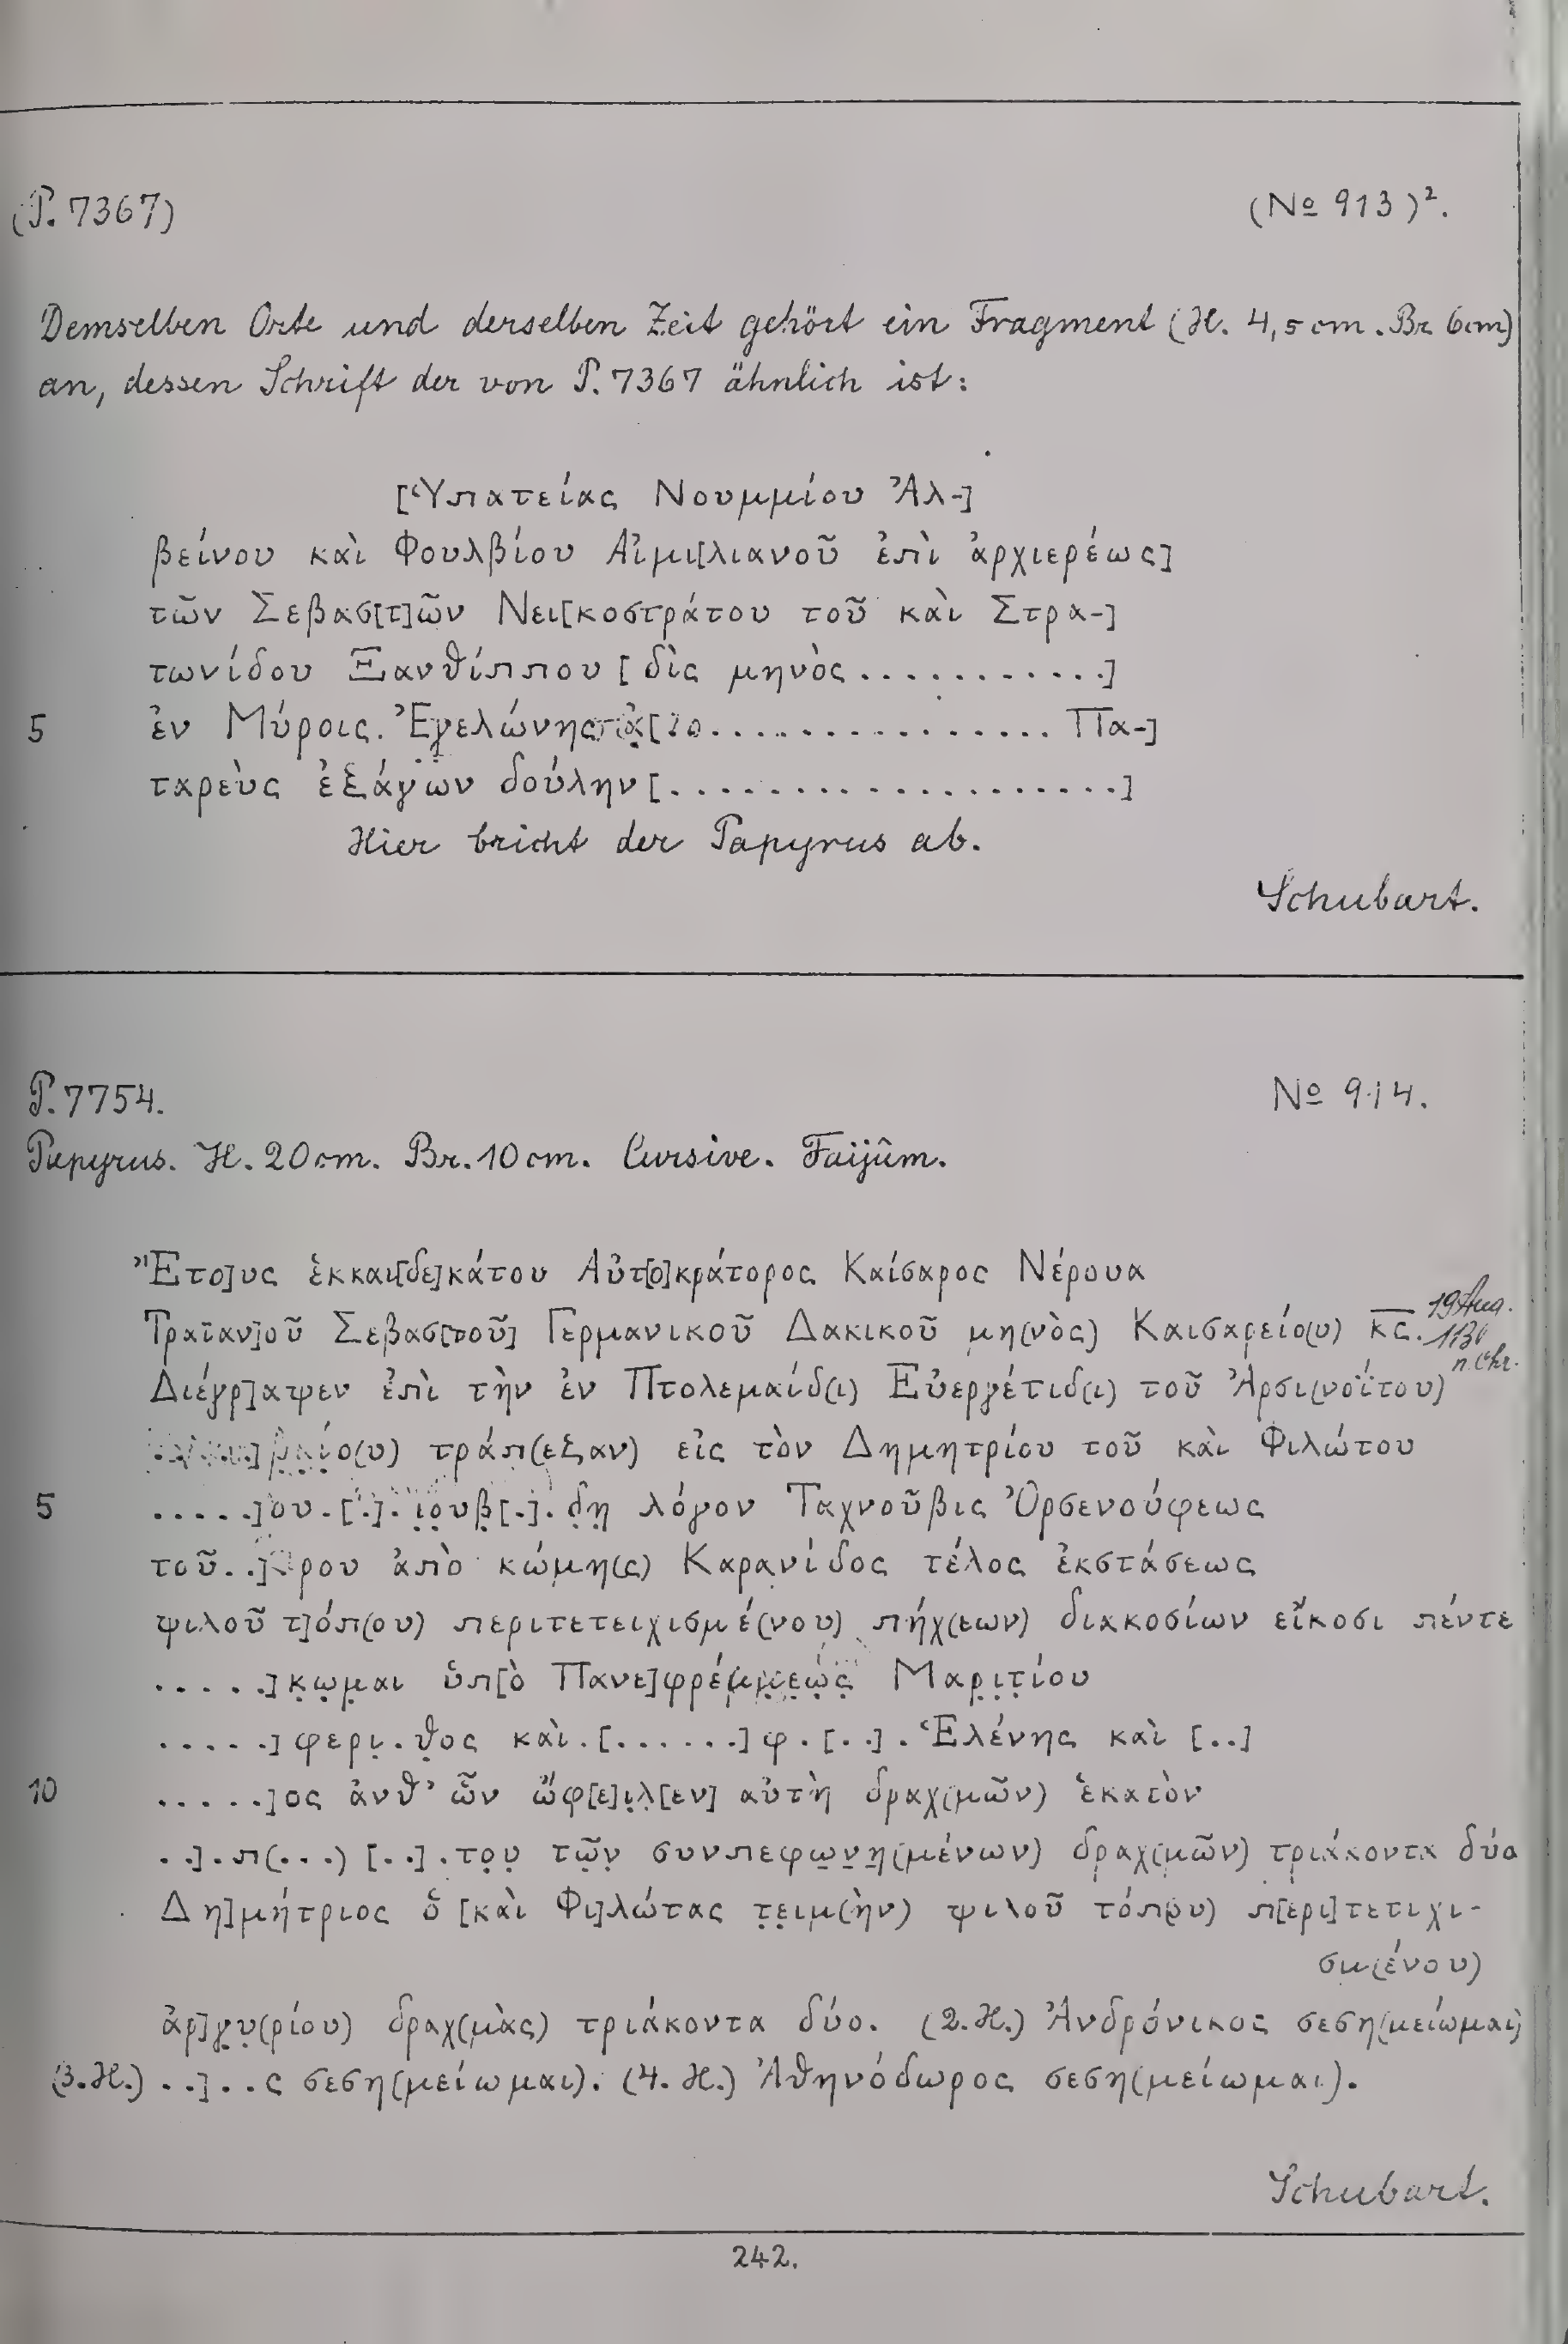 (P. 7367)
(No 913)².
Demselben Orte und derselben Zeit gehört ein Fragment (H. 4,5 cm. Br. 6cm)
an, dessen Schrift der von P. 7367 ähnlich ist:
[Ὑπατείας Νουμμίου Ἀλ-]
βείνου καὶ Φουλβίου Αἰμι[λιανοῦ ἐπὶ ἀρχιερέως]
τῶν Σεβασ[τ]ῶν Νει[κοστράτου τοῦ καὶ Στρα-]
τωνίδου Ξανθίππου [δὶς μηνὸς ............]
5 ἐν Μύροις. Ἐγελώνης [ ................ Πα-]
ταρεὺς ἐξάγων δούλην [....................]
Hier bricht der Papyrus ab.
Schubart.
P. 7754.
No 914.
Papyrus. H. 20 cm. Br. 10 cm. Cursive. Faijûm.
Ἔτο]υς ἑκκαι[δε]κάτου Αὐτ[ο]κράτορος Καίσαρος Νέρουα
Τραϊαν]οῦ Σεβασ[τοῦ] Γερμανικοῦ Δακικοῦ μη(νὸς) Καισαρείο(υ) κ̅ς̅. 19 Aug.
n. Chr.
Διέγρ]αψεν ἐπὶ τὴν ἐν Πτολεμαίδ(ι) Εὐεργέτιδ(ι) τοῦ Ἀρσι(νοΐτου)
]ο(υ) τράπ(εζαν) εἰς τὸν Δημητρίου τοῦ καὶ Φιλώτου
5 .....]ου.[.]. ι̣ο̣υβ̣[.]. δ̣η̣ λόγον Ταχνοῦβις Ὀρσενούφεως
τοῦ..] ρου ἀπὸ κώμη(ς) Καρανίδος τέλος ἐκστάσεως
ψιλοῦ τ]όπ(ου) περιτετειχισμέ(νου) πήχ(εων) διακοσίων εἴκοσι πέντε
.....]κ̣ω̣μ̣αι ὑπ[ὸ Πανε]φρέμ̣μ̣ε̣ω̣ς̣ Μαρ̣ι̣τ̣ίου
.....]φερι̣.θ̣ος καὶ.[......]φ.[..]. Ἑλένης καὶ [..]
10 .....]ος ἀνθ’ ὧν ὤφ[ε]ι̣λ̣[εν] αὐτὴ δραχ(μῶν) ἑκατὸν
..].π(...) [..].το̣υ̣ τῶ̣ν̣ συνπεφω̣ν̣η̣(μένων) δραχ(μῶν) τριάκοντα δύο
Δη]μήτριος ὁ [καὶ Φι]λώτας τ̣ε̣ιμ(ὴν) ψιλοῦ τόπου) π[ερι]τετιχι-
σμ(ένου)
ἀρ]γ̣υ̣(ρίου) δραχ(μὰς) τριάκοντα δύο. (2. H.) Ἀνδρόνικος σεση(μείωμαι)
(3. H.) ..]..ς σεση(μείωμαι). (4. H.) Ἀθηνόδωρος σεση(μείωμαι).
Schubart.
242.